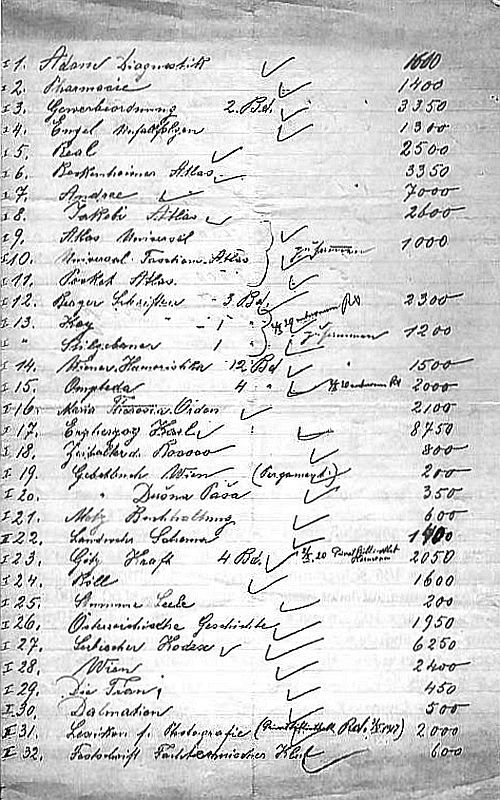 I 1. Adam Diagnostik 1600
I 2. Pharmacie 1400
I 3. Gewerbeordnung 2. Bd. 3350
I 4. Engel 1300
I 5. Real 2500
I 6. Bockenheimer Atlas 3350
I 7. Andree 7000
I 8. Jakobi Atlas 2600
I 9. Atlas Universel
I 10. Universal Taschen-Atlas zusammen 1000
I 11. Pocket Atlas
I 12. Schriften - 3 Bd. 2300
I 13. " - 1 "
" 1 " zusammen 1200
I 14. Wiener Humoristika 12 Bd 1500
I 15. Ompteda 4 " 2000
I 16. Maria Theresia Orden 2100
I 17. Erzherzog Karl 8750
I 18. Zeitalter d. Rococo 800
I 19. Gebetbuch Wien (Pergament) 200
I 20. " Pascha 350
I 21. Buchhaltung 600
I 22. Landrechts Schema
I 23. Götz Kraft 4 Bd. 2050
I 24. Böll 1600
I 25. Stumme Seele 200
I 26. Österreichische Geschichte 1950
I 27. Serbischer Kodex 6250
I 28. Wien 2400
I 29. Die Frau 450
I 30. Dalmatien 500
I 31. Lexikon f. Photografie 2000
I 32. Festschrift Fachtechnischer Klub 600